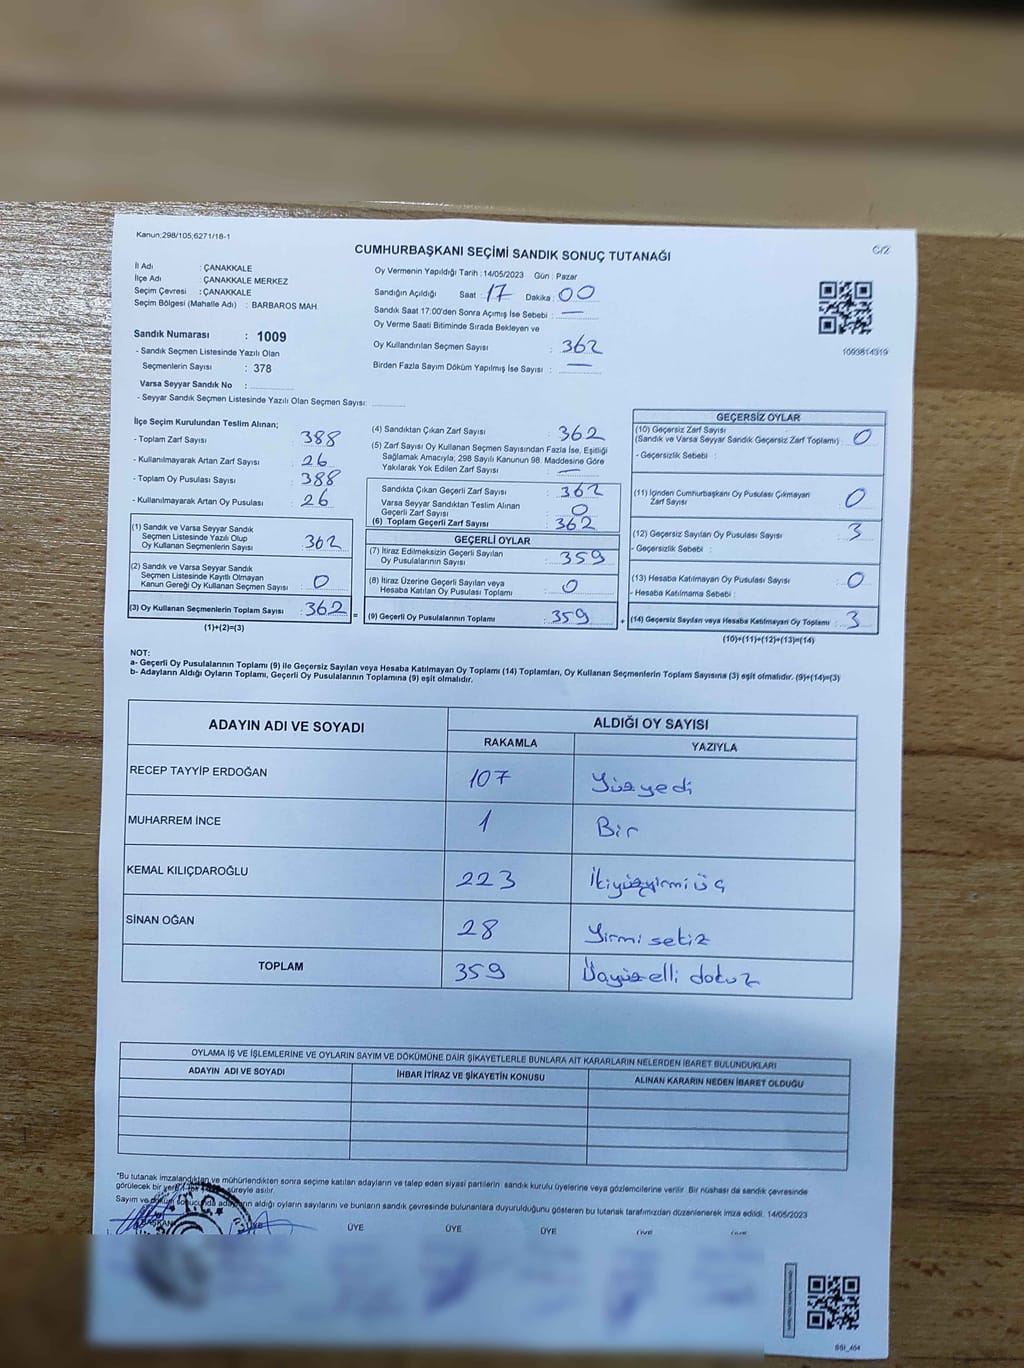 Kanun;298/105;6271/18-1
C/2
CUMHURBAŞKANI SEÇİMİ SANDIK SONUÇ TUTANAĞI
İl Adı : ÇANAKKALE
İlçe Adı : ÇANAKKALE MERKEZ
Seçim Çevresi : ÇANAKKALE
Seçim Bölgesi (Mahalle Adı) : BARBAROS MAH.
Sandık Numarası : 1009
- Sandık Seçmen Listesinde Yazılı Olan
Seçmenlerin Sayısı : 378
Varsa Seyyar Sandık No :
- Seyyar Sandık Seçmen Listesinde Yazılı Olan Seçmen Sayısı:
Oy Vermenin Yapıldığı Tarih : 14/05/2023 Gün : Pazar
Sandığın Açıldığı Saat : 17 Dakika : 00
Sandık Saat 17:00'den Sonra Açımış İse Sebebi : —
Oy Verme Saati Bitiminde Sırada Bekleyen ve
Oy Kullandırılan Seçmen Sayısı : 362
Birden Fazla Sayım Döküm Yapılmış İse Sayısı : —
1093814919
İlçe Seçim Kurulundan Teslim Alınan;
- Toplam Zarf Sayısı : 388
- Kullanılmayarak Artan Zarf Sayısı : 26
- Toplam Oy Pusulası Sayısı : 388
- Kullanılmayarak Artan Oy Pusulası : 26
(1) Sandık ve Varsa Seyyar Sandık
Seçmen Listesinde Yazılı Olup
Oy Kullanan Seçmenlerin Sayısı : 362
(2) Sandık ve Varsa Seyyar Sandık
Seçmen Listesinde Kayıtlı Olmayan
Kanun Gereği Oy Kullanan Seçmen Sayısı : 0
(3) Oy Kullanan Seçmenlerin Toplam Sayısı : 362 =
(1)+(2)=(3)
(4) Sandıktan Çıkan Zarf Sayısı : 362
(5) Zarf Sayısı Oy Kullanan Seçmen Sayısından Fazla İse, Eşitliği
Sağlamak Amacıyla; 298 Sayılı Kanunun 98. Maddesine Göre
Yakılarak Yok Edilen Zarf Sayısı : —
Sandıkta Çıkan Geçerli Zarf Sayısı : 362
Varsa Seyyar Sandıktan Teslim Alınan
Geçerli Zarf Sayısı : 0
(6) Toplam Geçerli Zarf Sayısı : 362
GEÇERLİ OYLAR
(7) İtiraz Edilmeksizin Geçerli Sayılan
Oy Pusulalarının Sayısı : 359
(8) İtiraz Üzerine Geçerli Sayılan veya
Hesaba Katılan Oy Pusulası Toplamı : 0
(9) Geçerli Oy Pusulalarının Toplamı : 359 +
GEÇERSİZ OYLAR
(10) Geçersiz Zarf Sayısı
(Sandık ve Varsa Seyyar Sandık Geçersiz Zarf Toplamı) : 0
- Geçersizlik Sebebi :
(11) İçinden Cumhurbaşkanı Oy Pusulası Çıkmayan
Zarf Sayısı : 0
(12) Geçersiz Sayılan Oy Pusulası Sayısı : 3
- Geçersizlik Sebebi :
(13) Hesaba Katılmayan Oy Pusulası Sayısı : 0
- Hesaba Katılmama Sebebi :
(14) Geçersiz Sayılan veya Hesaba Katılmayan Oy Toplamı : 3
(10)+(11)+(12)+(13)=(14)
NOT:
a- Geçerli Oy Pusulalarının Toplamı (9) ile Geçersiz Sayılan veya Hesaba Katılmayan Oy Toplamı (14) Toplamları, Oy Kullanan Seçmenlerin Toplam Sayısına (3) eşit olmalıdır. (9)+(14)=(3)
b- Adayların Aldığı Oyların Toplamı, Geçerli Oy Pusulalarının Toplamına (9) eşit olmalıdır.
ADAYIN ADI VE SOYADI
ALDIĞI OY SAYISI
RAKAMLA YAZIYLA
RECEP TAYYİP ERDOĞAN 107 Yüzyedi
MUHARREM İNCE 1 Bir
KEMAL KILIÇDAROĞLU 223 İkiyüzyirmi üç
SİNAN OĞAN 28 Yirmi sekiz
TOPLAM 359 Üçyüzelli dokuz
OYLAMA İŞ VE İŞLEMLERİNE VE OYLARIN SAYIM VE DÖKÜMÜNE DAİR ŞİKAYETLERLE BUNLARA AİT KARARLARIN NELERDEN İBARET BULUNDUKLARI
ADAYIN ADI VE SOYADI İHBAR İTİRAZ VE ŞİKAYETİN KONUSU ALINAN KARARIN NEDEN İBARET OLDUĞU
*Bu tutanak imzalandıktan ve mühürlendikten sonra seçime katılan adayların ve talep eden siyasi partilerin sandık kurulu üyelerine veya gözlemcilerine verilir. Bir nüshası da sandık çevresinde
görülecek bir yere süreyle asılır.
Sayım ve döküm sonucunda adayların aldığı oyların sayılarını ve bunların sandık çevresinde bulunanlara duyurulduğunu gösteren bu tutanak tarafımızdan düzenlenerek imza edildi. 14/05/2023
BAŞKAN ÜYE ÜYE ÜYE ÜYE ÜYE ÜYE
SSI_464